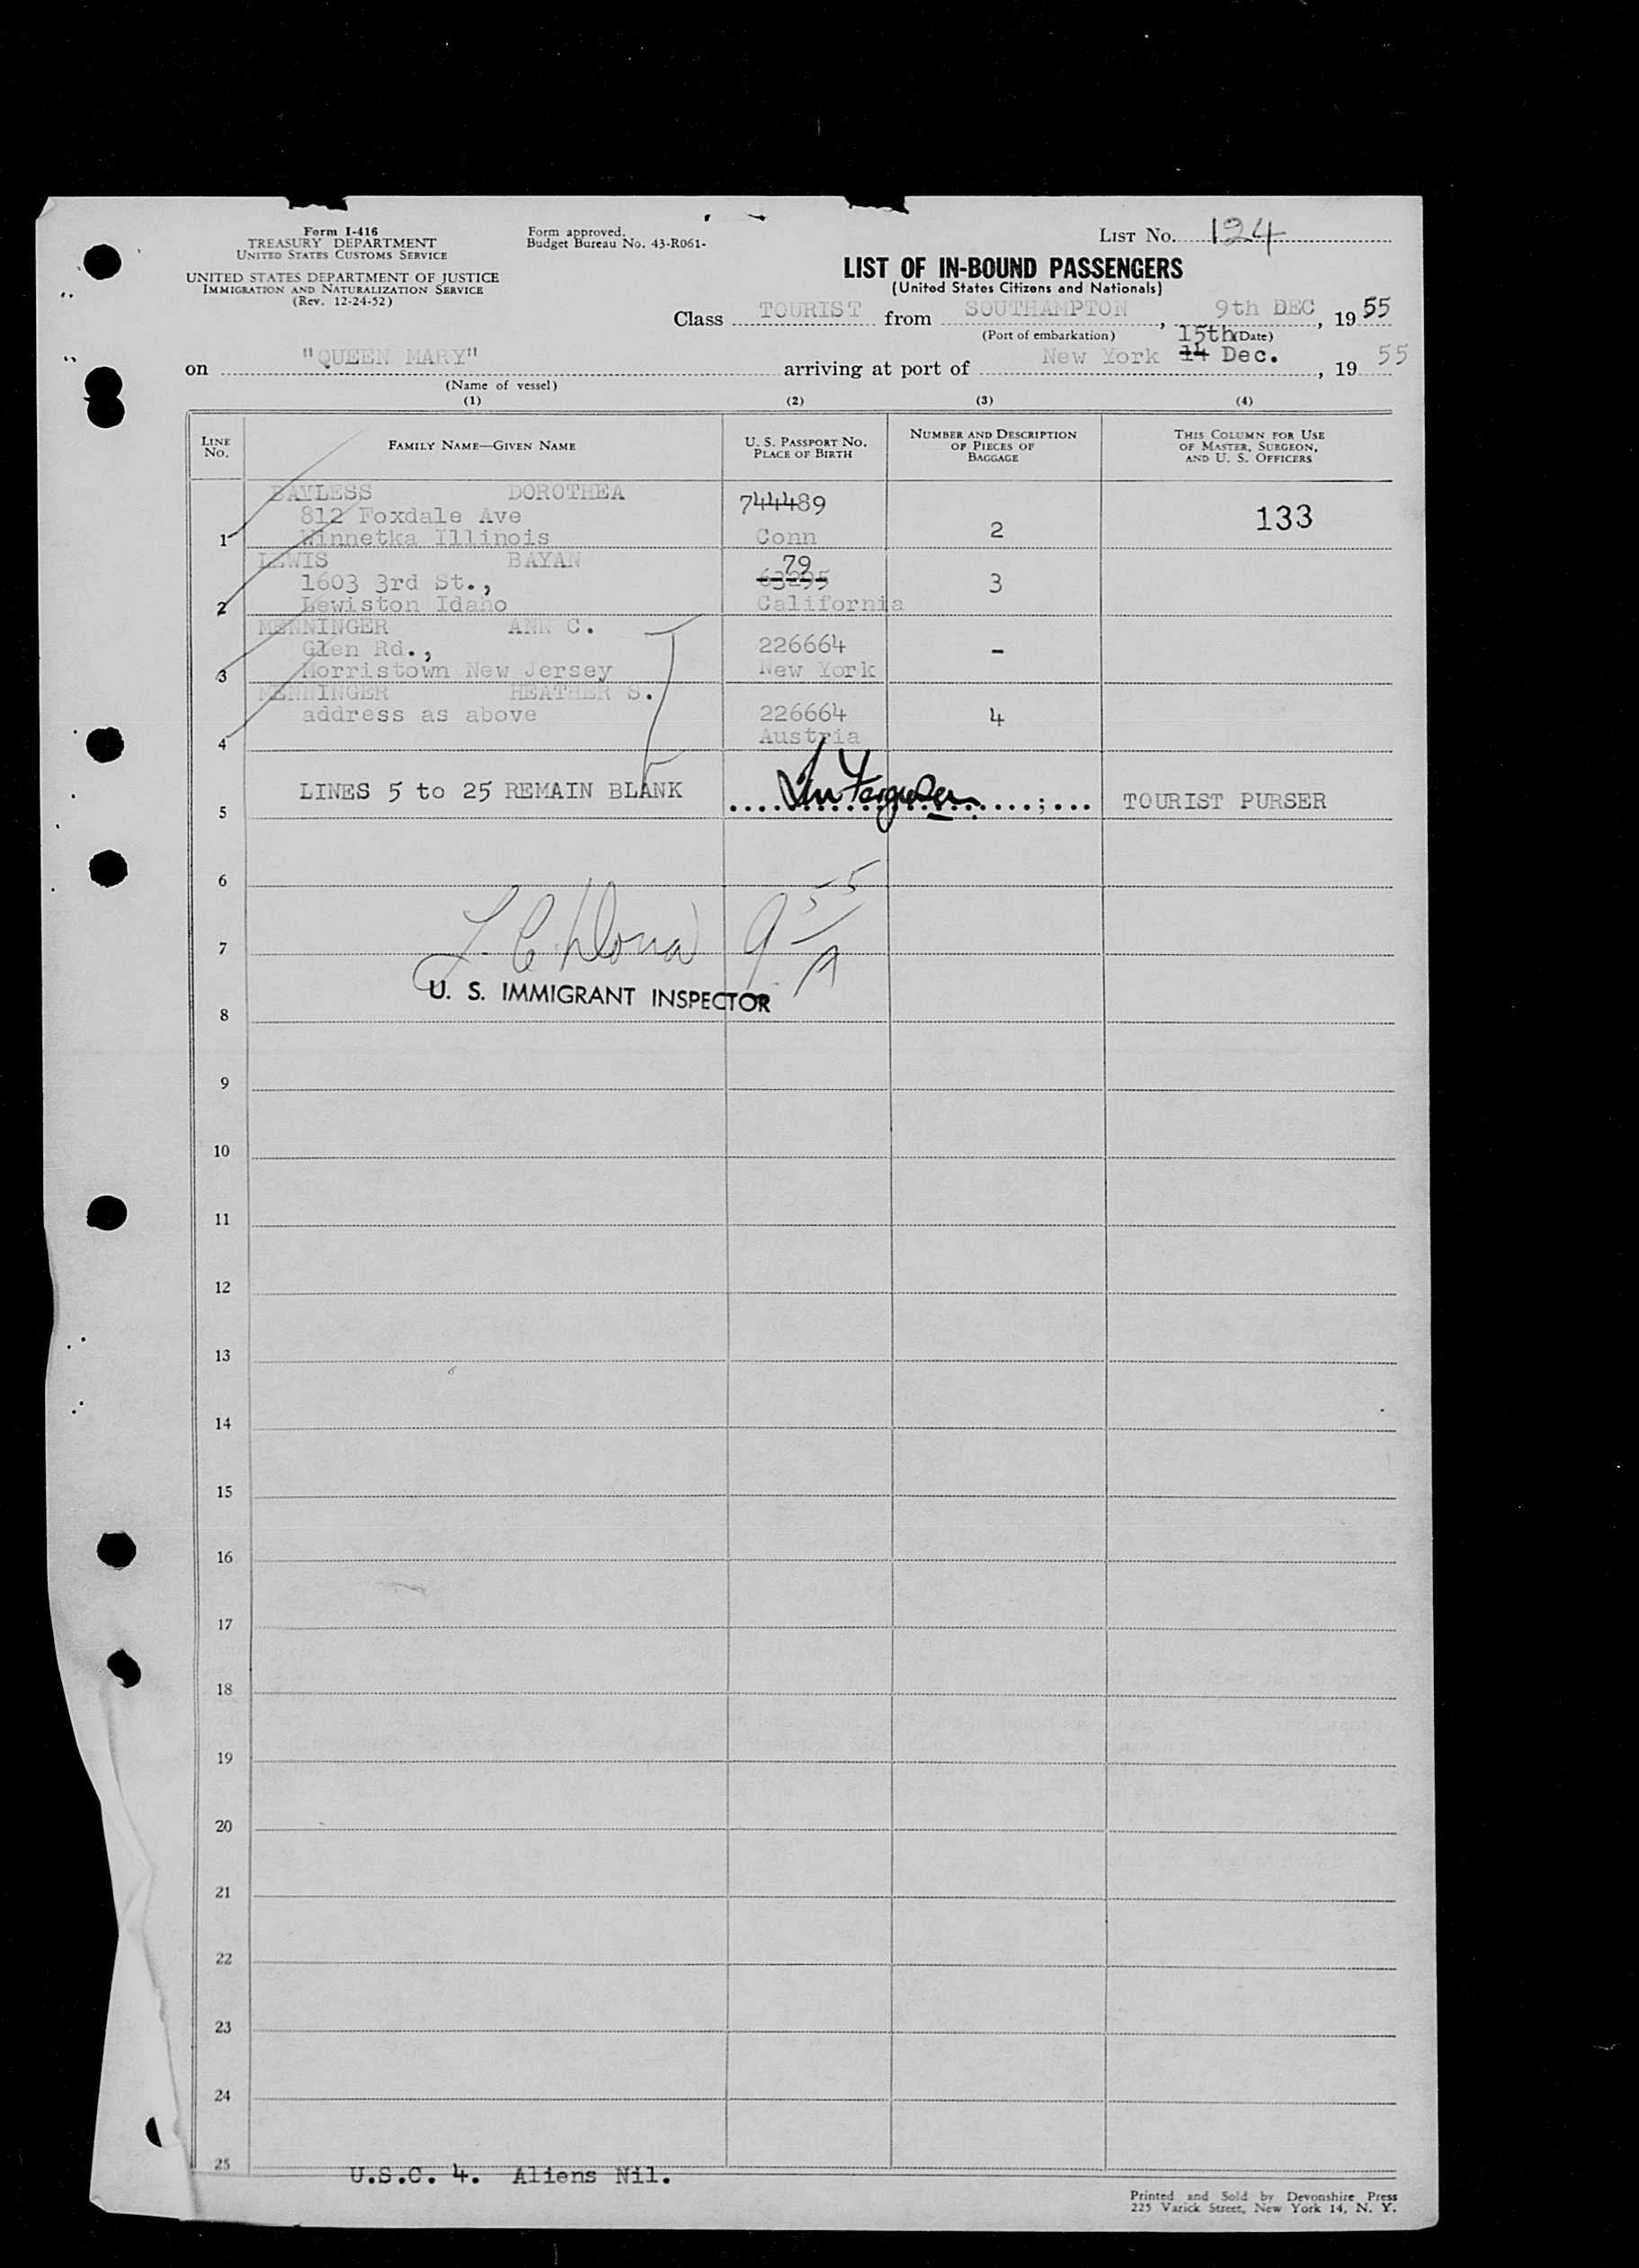 Form I-416
TREASURY DEPARTMENT
UNITED STATES CUSTOMS SERVICE
UNITED STATES DEPARTMENT OF JUSTICE
IMMIGRATION AND NATURALIZATION SERVICE
(Rev. 12-24-52)
Form approved.
Budget Bureau No. 43-R061-
LIST No. 124
LIST OF IN-BOUND PASSENGERS
(United States Citizens and Nationals)
Class TOURIST from SOUTHAMPTON, 9th DEC, 19 55
(Port of embarkation) 15th (Date)
on "QUEEN MARY" arriving at port of New York 14 Dec., 19 55
(Name of vessel)
(1) (2) (3) (4)
LINE No. FAMILY NAME—GIVEN NAME U. S. PASSPORT No. PLACE OF BIRTH NUMBER AND DESCRIPTION OF PIECES OF BAGGAGE THIS COLUMN FOR USE OF MASTER, SURGEON, AND U. S. OFFICERS
BAYLESS DOROTHEA 744489
812 Foxdale Ave 133
1 Winnetka Illinois Conn 2
LEWIS BAYAN 79
1603 3rd St., 63295 3
2 Lewiston Idaho California
MENNINGER ANN C.
Glen Rd., 226664 -
3 Morristown New Jersey New York
MENNINGER HEATHER S.
address as above 226664 4
4 Austria
LINES 5 to 25 REMAIN BLANK TOURIST PURSER
5
6
7
9 55 A
U. S. IMMIGRANT INSPECTOR
8
9
10
11
12
13
14
15
16
17
18
19
20
21
22
23
24
25
U.S.C. 4. Aliens Nil.
Printed and Sold by Devonshire Press
225 Varick Street, New York 14, N. Y.